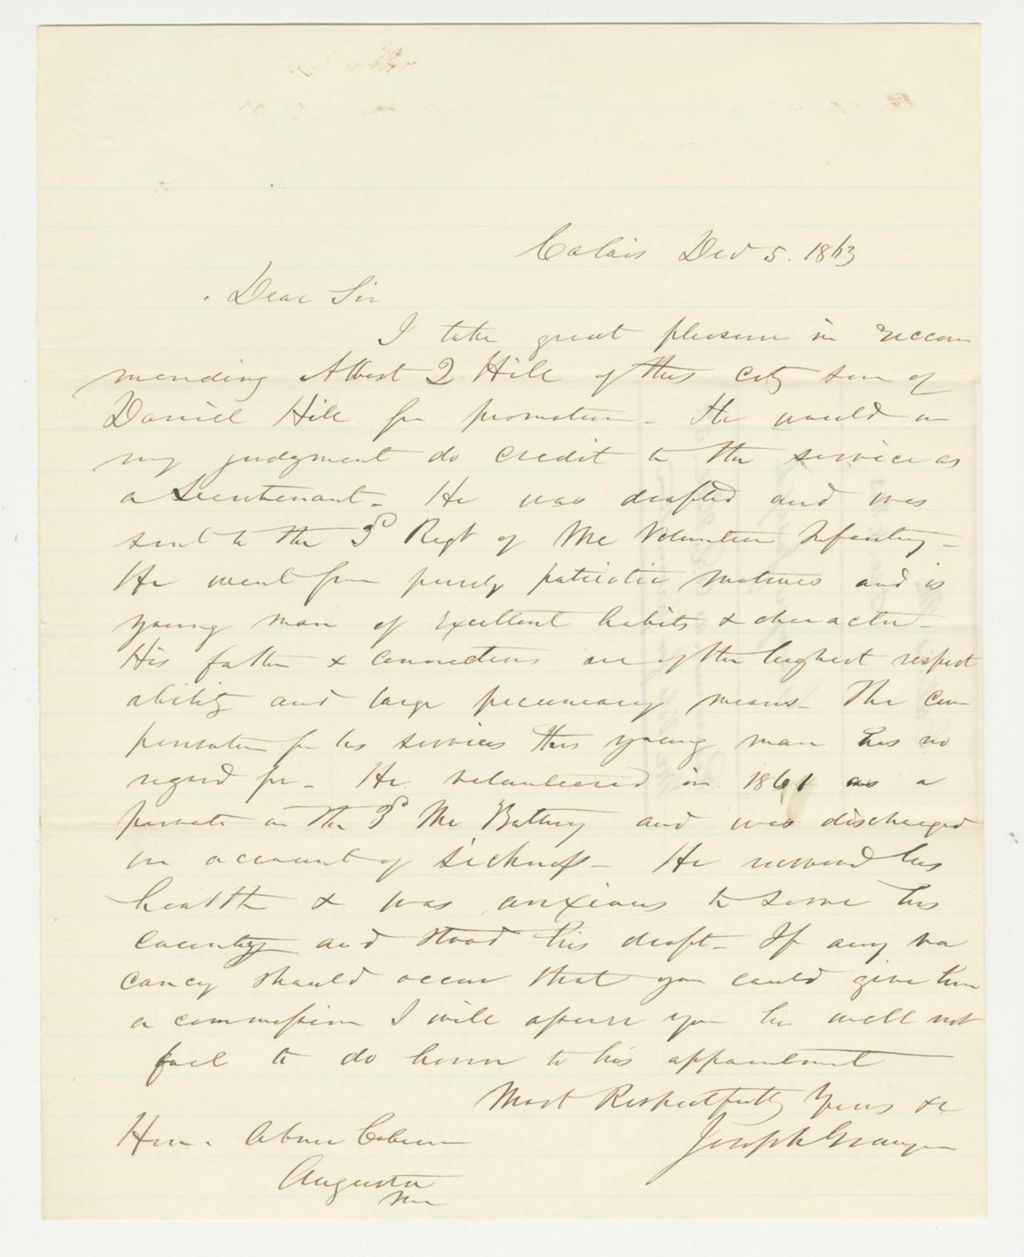 Calais Dec 5. 1863
Dear Sir
I take great pleasure in reccom
mending Albert Q Hill of this city son of
Daniel Hill for promotion - He would in
my judgment do credit to the service as
a Lieutenant - He was drafted and was
sent to the 3d Regt of Me Volunteer Infantry -
He went from purely patriotic motives and is
young man of excellent habits & character -
His father & connections are of the highest respect
ability and large pecuniary means - The com
pensation for his services this young man has no
regard for - He volunteered in 1861 as a
private in the 3d Me Battery and was discharged
on account of sickness - He recovered his
health & was anxious to serve his
Country and stood his draft - If any va
cancy should occur that you could give him
a commission I will assure you he will not
fail to do honor to his appointment
Most Respectfully Yours &c
Joseph Granger
Hon. Abner Coburn
Augusta
Me